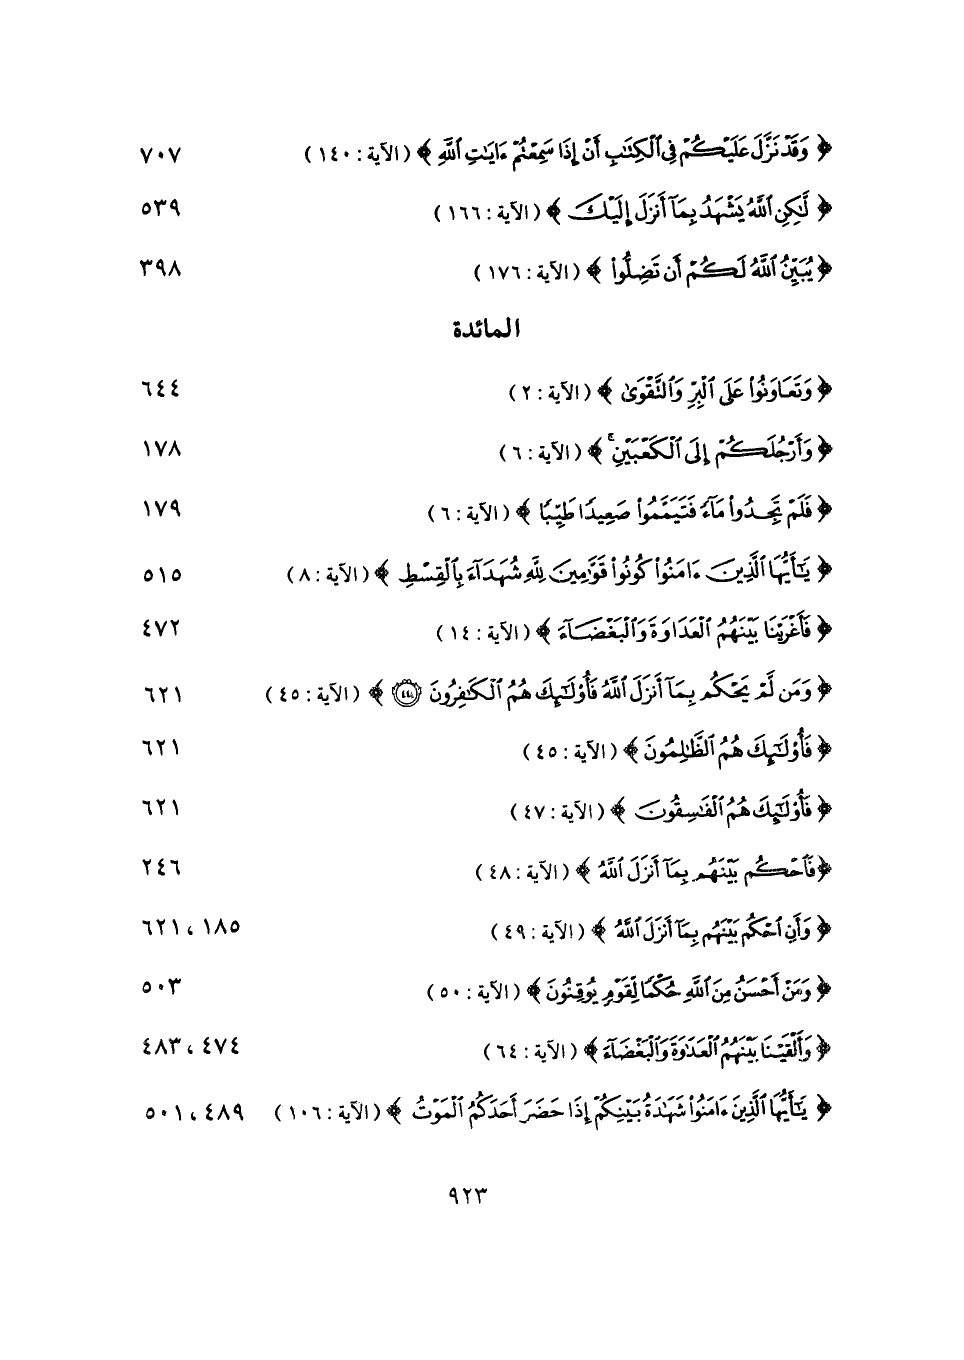 ﴿ وَقَدْ نَزَّلَ عَلَيْكُمْ فِى ٱلْكِتَٰبِ أَنْ إِذَا سَمِعْتُمْ ءَايَٰتِ ٱللَّهِ ﴾ ( الآية : ١٤٠ ) ٧٠٧
﴿ لَّٰكِنِ ٱللَّهُ يَشْهَدُ بِمَآ أَنزَلَ إِلَيْكَ ﴾ ( الآية : ١٦٦ ) ٥٣٩
﴿ يُبَيِّنُ ٱللَّهُ لَكُمْ أَن تَضِلُّوا۟ ﴾ ( الآية : ١٧٦ ) ٣٩٨
المائدة
﴿ وَتَعَاوَنُوا۟ عَلَى ٱلْبِرِّ وَٱلتَّقْوَىٰ ﴾ ( الآية : ٢ ) ٦٤٤
﴿ وَأَرْجُلَكُمْ إِلَى ٱلْكَعْبَيْنِ ۚ ﴾ ( الآية : ٦ ) ١٧٨
﴿ فَلَمْ تَجِدُوا۟ مَآءً فَتَيَمَّمُوا۟ صَعِيدًا طَيِّبًا ﴾ ( الآية : ٦ ) ١٧٩
﴿ يَٰٓأَيُّهَا ٱلَّذِينَ ءَامَنُوا۟ كُونُوا۟ قَوَّٰمِينَ لِلَّهِ شُهَدَآءَ بِٱلْقِسْطِ ﴾ ( الآية : ٨ ) ٥١٥
﴿ فَأَغْرَيْنَا بَيْنَهُمُ ٱلْعَدَاوَةَ وَٱلْبَغْضَآءَ ﴾ ( الآية : ١٤ ) ٤٧٢
﴿ وَمَن لَّمْ يَحْكُم بِمَآ أَنزَلَ ٱللَّهُ فَأُو۟لَٰٓئِكَ هُمُ ٱلْكَٰفِرُونَ ٤٤ ﴾ ( الآية : ٤٥ ) ٦٢١
﴿ فَأُو۟لَٰٓئِكَ هُمُ ٱلظَّٰلِمُونَ ﴾ ( الآية : ٤٥ ) ٦٢١
﴿ فَأُو۟لَٰٓئِكَ هُمُ ٱلْفَٰسِقُونَ ﴾ ( الآية : ٤٧ ) ٦٢١
﴿ فَٱحْكُم بَيْنَهُم بِمَآ أَنزَلَ ٱللَّهُ ﴾ ( الآية : ٤٨ ) ٢٤٦
﴿ وَأَنِ ٱحْكُم بَيْنَهُم بِمَآ أَنزَلَ ٱللَّهُ ﴾ ( الآية : ٤٩ ) ١٨٥ ، ٦٢١
﴿ وَمَنْ أَحْسَنُ مِنَ ٱللَّهِ حُكْمًا لِّقَوْمٍ يُوقِنُونَ ﴾ ( الآية : ٥٠ ) ٥٠٣
﴿ وَأَلْقَيْنَا بَيْنَهُمُ ٱلْعَدَٰوَةَ وَٱلْبَغْضَآءَ ﴾ ( الآية : ٦٤ ) ٤٧٤ ، ٤٨٣
﴿ يَٰٓأَيُّهَا ٱلَّذِينَ ءَامَنُوا۟ شَهَٰدَةُ بَيْنِكُمْ إِذَا حَضَرَ أَحَدَكُمُ ٱلْمَوْتُ ﴾ ( الآية : ١٠٦ ) ٤٨٩ ، ٥٠١
٩٢٣